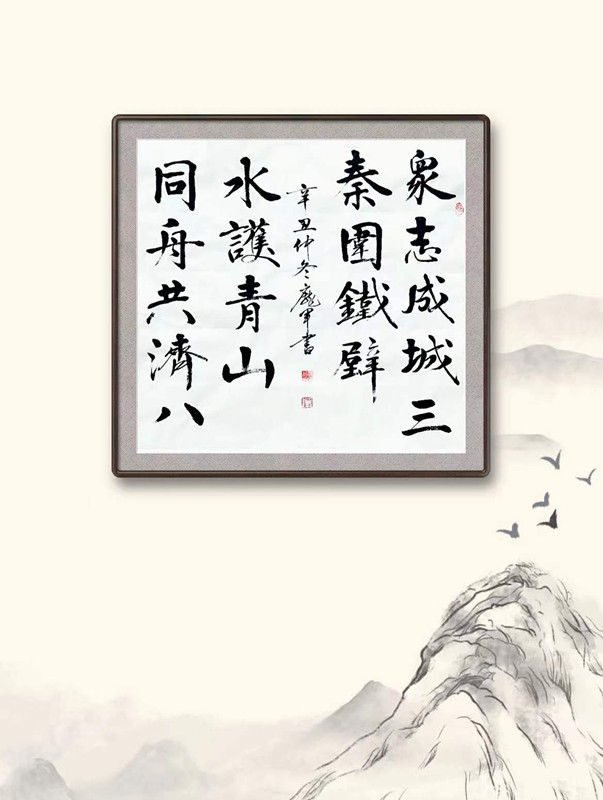 衆志成城三
秦圍鐵壁
同舟共濟八
水護青山
辛丑仲冬龐軍書